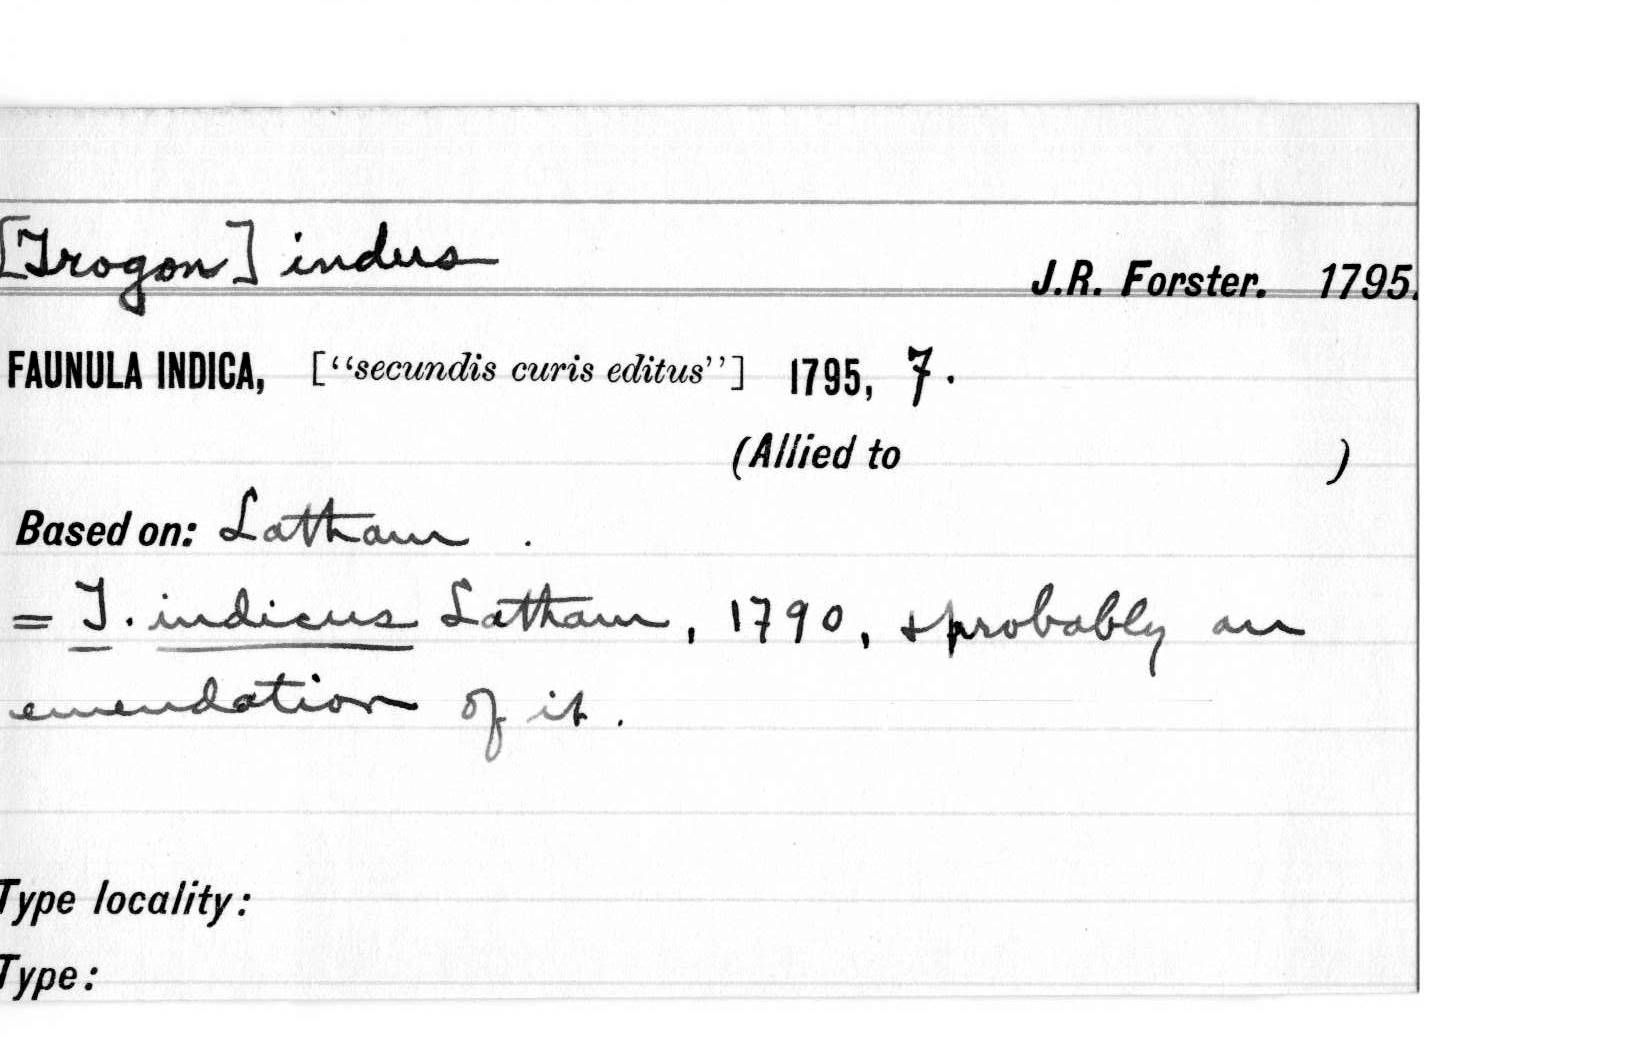 [Trogon] indus
J.R. Forster. 1795.
FAUNULA INDICA, [“secundis curis editus”] 1795, 7.
(Allied to )
Based on: Latham .
= T. indicus Latham, 1790, & probably an
emendation of it.
Type locality:
Type: